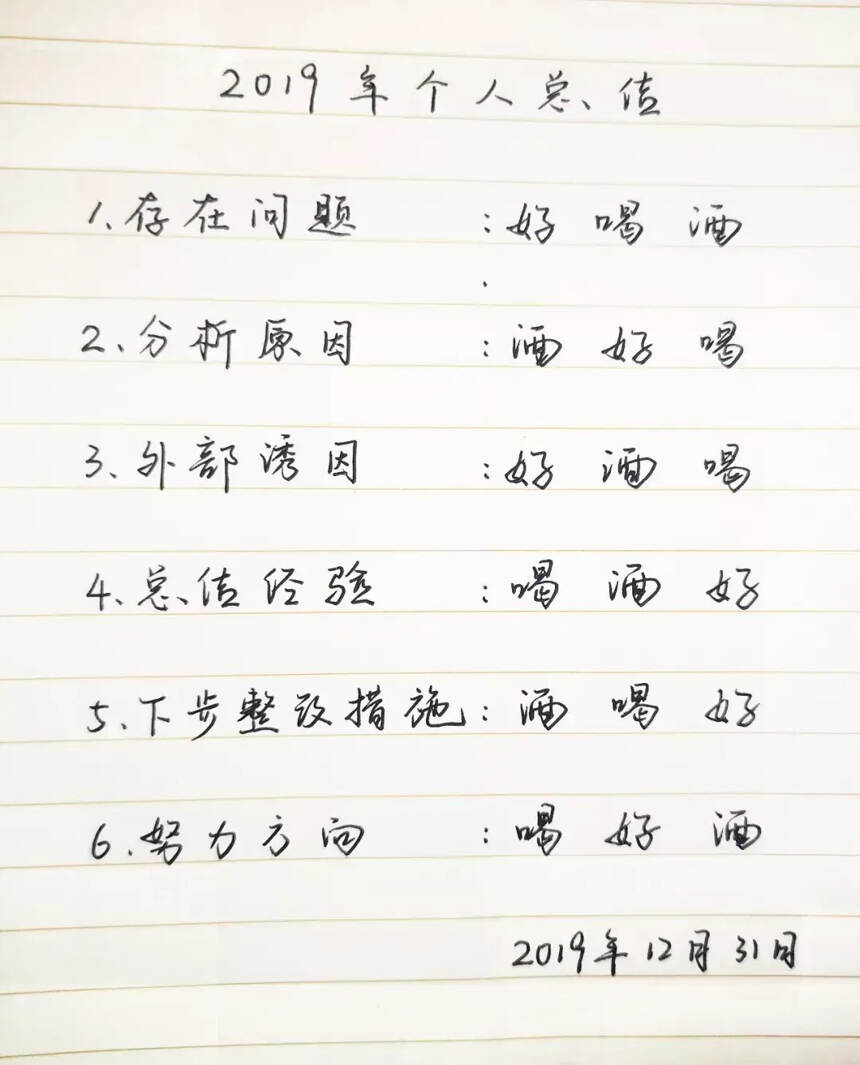 2019年个人总结
1、存在问题：好喝酒
2、分析原因：酒好喝
3、外部诱因：好酒喝
4、总结经验：喝酒好
5、下步整改措施：酒喝好
6、努力方向：喝好酒
2019年12月31日